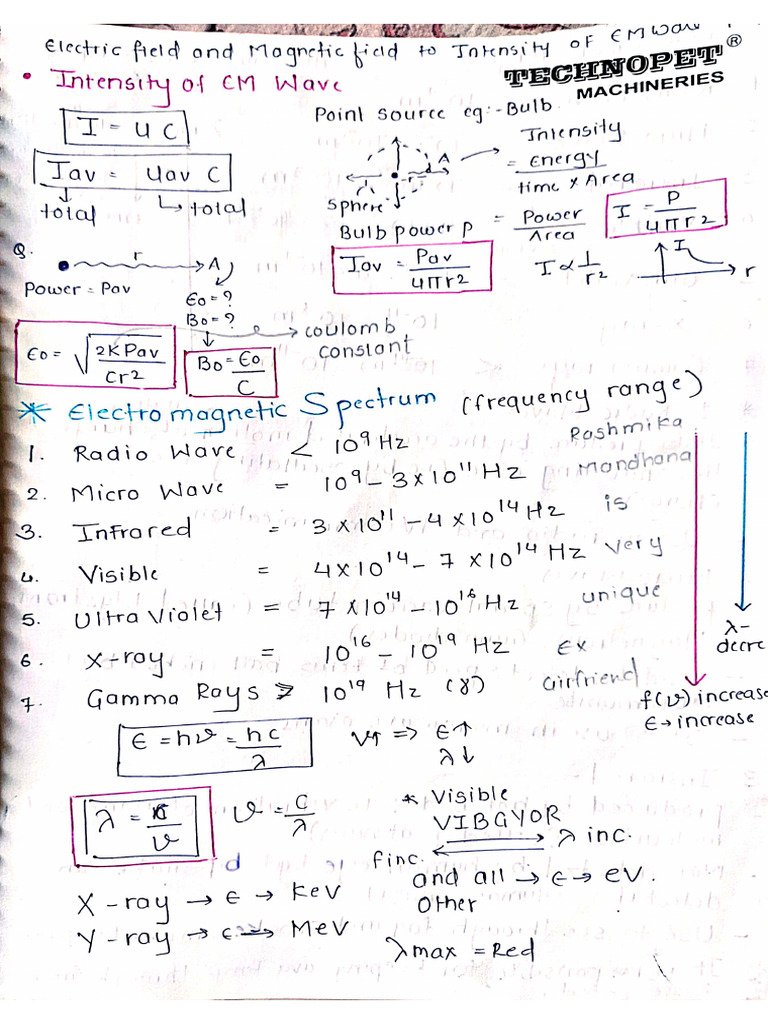 Electric field and Magnetic field to Intensity OF EM Wave
TECHNOPET ®
MACHINERIES
• Intensity of EM Wave
I = u c
Iav = uav c
total total
Point source eg:- Bulb
A
r
sphere
Bulb power P
Intensity
= Energy / time × Area
= Power / Area
I = P / 4πr2
Iav = Pav / 4πr2
I ∝ 1 / r2
I
r
Q.
r
A
Power = Pav
E0 = ?
B0 = ?
E0 = √ 2KPav / Cr2
coulomb constant
B0 = E0 / C
* Electromagnetic Spectrum (frequency range)
1. Radio Wave < 10⁹ Hz Rashmika
2. Micro Wave = 10⁹ – 3×10¹¹ Hz Mandhana
3. Infrared = 3×10¹¹ – 4×10¹⁴ Hz is
4. Visible = 4×10¹⁴ – 7×10¹⁴ Hz very
5. Ultra Violet = 7×10¹⁴ – 10¹⁶ Hz unique
6. X-ray = 10¹⁶ – 10¹⁹ Hz Ex
7. Gamma Rays > 10¹⁹ Hz (γ) Girlfriend
λ-
decre
f(ν) increase
E→increase
E = hν = hc / λ
ν↑ ⇒ E↑
λ↓
λ = c / ν
ν = c / λ
* Visible
VIBGYOR
λ inc.
f inc.
d
X-ray → E → KeV
and all → E → eV.
other
γ-ray → E → MeV
λmax = Red